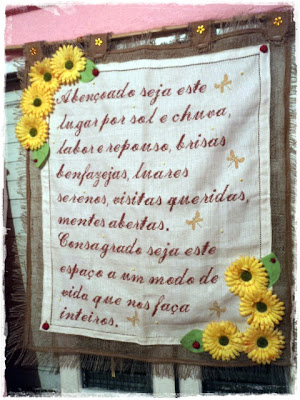 Abençoado seja este
lugar por sol e chuva,
labor e repouso, brisas
benfazejas, luares
serenos, visitas queridas,
mentes abertas.
Consagrado seja este
espaço a um modo de
vida que nos faça
inteiros.